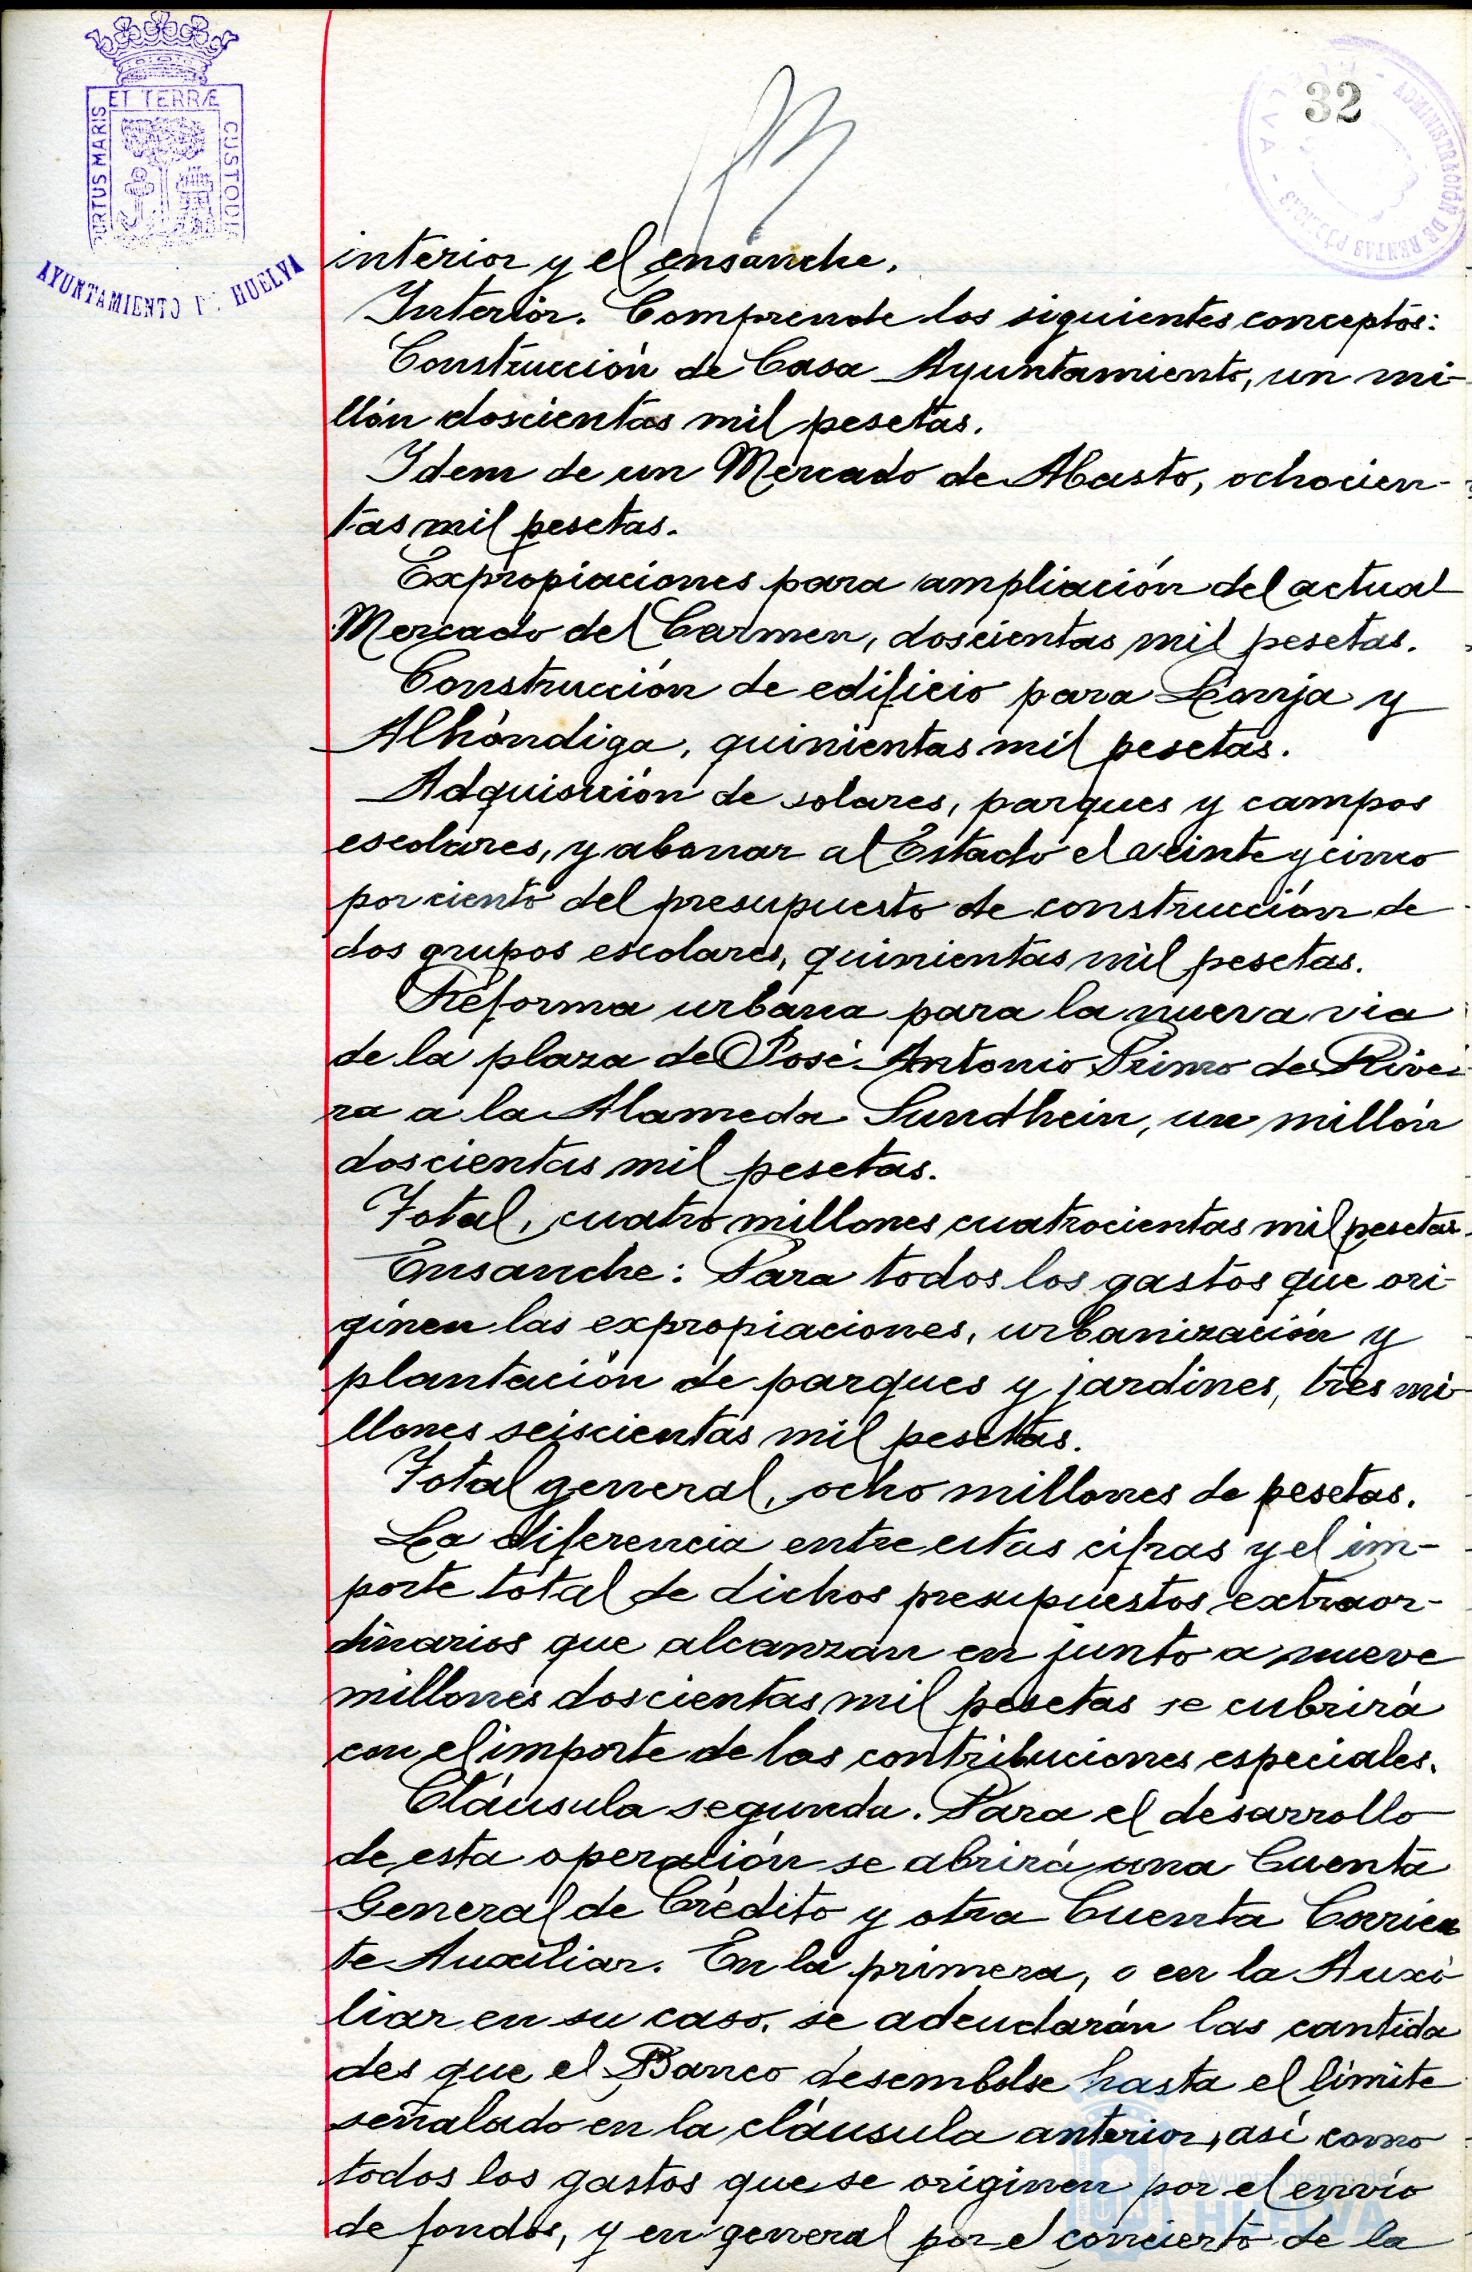 ET TERRÆ
PORTUS MARIS
CUSTODIA
AYUNTAMIENTO DE HUELVA
32
ADMINISTRACIÓN DE RENTAS PÚBLICAS
interior y el ensanche.
Interior. Comprende los siguientes conceptos:
Construcción de Casa Ayuntamiento, un mi-
llón doscientas mil pesetas.
Idem de un Mercado de Abasto, ochocien-
tas mil pesetas.
Expropiaciones para ampliación del actual
Mercado del Carmen, doscientas mil pesetas.
Construcción de edificio para Lonja y
Alhóndiga, quinientas mil pesetas.
Adquisición de solares, parques y campos
escolares, y abonar al Estado el veinte y cinco
por ciento del presupuesto de construcción de
dos grupos escolares, quinientas mil pesetas.
Reforma urbana para la nueva via
de la plaza de José Antonio Primo de Rive-
ra a la Alameda Sundhein, un millón
doscientas mil pesetas.
Total, cuatro millones cuatrocientas mil pesetas.
Ensanche: Para todos los gastos que ori-
ginen las expropiaciones, urbanización y
plantación de parques y jardines, tres mi-
llones seiscientas mil pesetas.
Total general, ocho millones de pesetas.
La diferencia entre estas cifras y el im-
porte total de dichos presupuestos extraor-
dinarios que alcanzan en junto a nueve
millones doscientas mil pesetas se cubrirá
con el importe de las contribuciones especiales.
Cláusula segunda. Para el desarrollo
de esta operación se abrirá una Cuenta
General de Crédito y otra Cuenta Corrien
te Auxiliar. En la primera, o en la Auxi
liar en su caso, se adeudarán las cantida
des que el Banco desembolse hasta el límite
señalado en la cláusula anterior, así como
todos los gastos que se originen por el envío
de fondos, y en general por el concierto de la
Ayuntamiento de
HUELVA